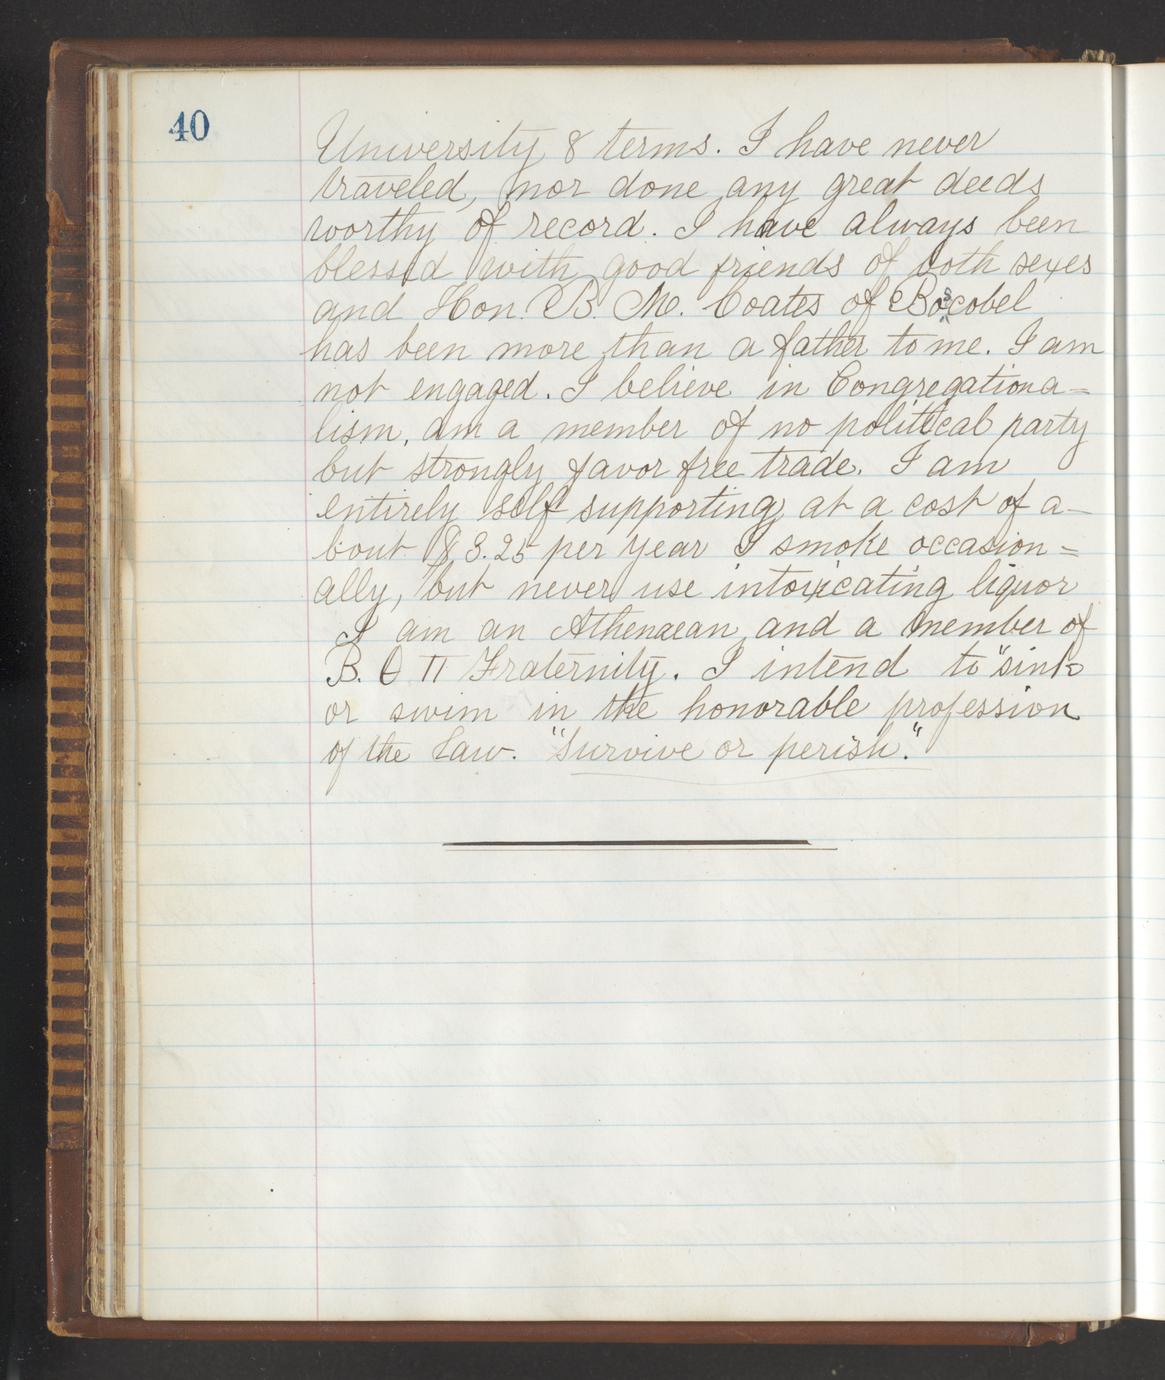 40
University 8 terms. I have never
traveled, nor done any great deeds
worthy of record. I have always been
blessed with good friends of both sexes
and Hon. B. M. Coates of Boscobel
has been more than a father to me. I am
not engaged. I believe in Congregationa=
lism, am a member of no political party
but strongly favor free trade. I am
entirely self supporting at a cost of a-
bout $3.25 per year I smoke occasion=
ally, but never use intoxicating liquor
I am an Athenaean, and a member of
B. Θ Π Fraternity. I intend to "sink
or swim in the honorable profession
of the Law. "Survive or perish."